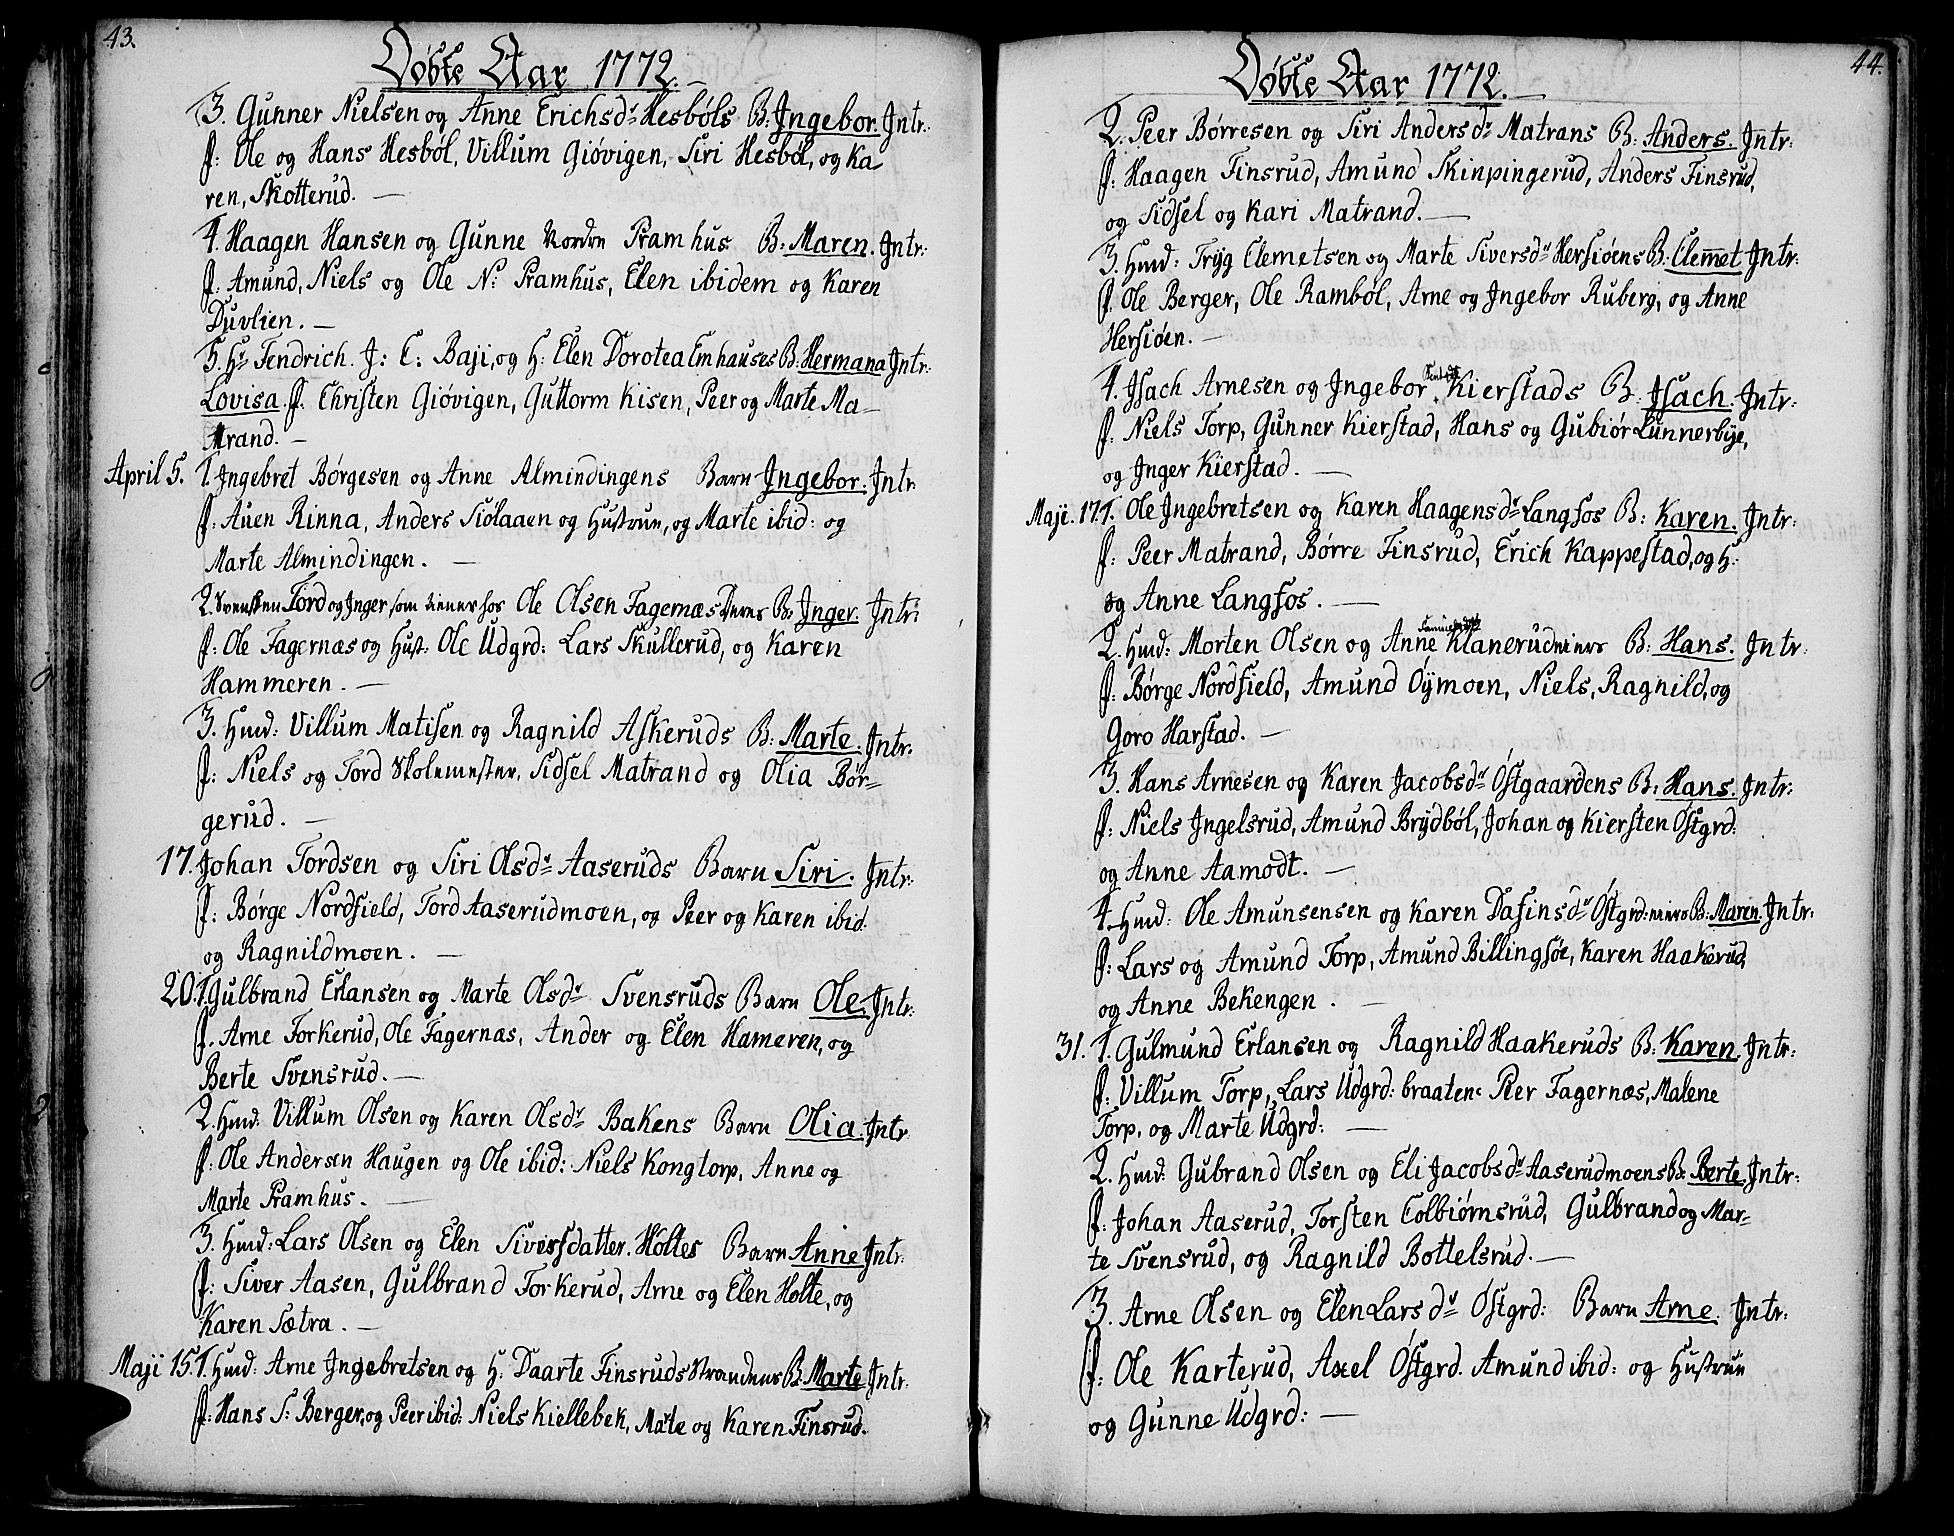 43.
Døbte Aar 1772.
3. Gunner Nielsen og Anne Erichsdr Hesbøls B: Ingebor. Intr.
f: Ole og Hans Hesbøl, Villum Giøvigen, Siri Hesbøl, og Ka
ren, Skotterud. —
4. Haagen Hansen og Gunne Nordre Pramhus B: Maren. Intr:
f: Amund, Niels og Ole N: Pramhus, Elen ibidem og Karen
Duvlien. —
5. Hr Fendrich J: C: Baji, og H: Elen Dorotea Emhauses B: Hermana Intr:
Lovisa. f. Christen Giøvigen, Guttorm Kisen, Peer og Marte Ma-
trand. —
April 5. 1. Ingebret Børgesen og Anne Almindingens Barn Ingebor. Intr
f: Auen Rinna, Anders Siølaaen og Hustrue, og Marte ibid: og
Marte Almindingen. —
2. Svensken Tord og Inger, som tiener hos Ole Olsen Fagernæs Deres B: Inger. Intr:
f: Ole Fagernæs og Hust: Ole Udgrd: Lars Skullerud, og Karen
Hammeren. —
3. Hmd: Villum Matisen og Ragnild Askeruds B: Marte. Intr:
f: Niels og Tord Skolemester, Sidsel Matrand og Olia Bør-
gerud. —
17. Johan Tordsen og Siri Olsdr Aaseruds Barn Siri. Intr:
f: Børge Nordfield, Tord Aaserudmoen, og Peer og Karen ibid.
og Ragnildmoen. —
20. 1. Gulbrand Erlansen og Marte Olsdr Svensruds Barn Ole. Intr:
f. Arne Torkerud, Ole Fagernæs, Ander og Elen Hameren, og
Berte Svensrud. —
2. Hmd: Villum Olsen og Karen Olsdr Bakens Barn Olia. Intr
f: Ole Andersen Haugen og Ole ibid: Niels Kongtorp, Anne og
Marte Pramhus. —
3. Hmd: Lars Olsen og Elen Siversdatter. Holtes Barn Anne Intr:
f: Siver Aasen, Gulbrand Torkerud, Arne og Elen Holte, og
Karen Sætra. —
Maji 15. 1. Hmd: Arne Ingebretsen og H: Daarte Finsruds Strandens B: Marte Intr:
f: Hans S: Berger, og Peer ibid: Niels Kiellebek, Mate og Karen Finsrud.
44.
Døbte Aar 1772. —
2. Peer Børresen og Siri Andersdr Matrans B: Anders. Intr:
f: Haagen Finsrud, Amund Skinpingerud, Anders Finsrud,
og Sidsel og Kari Matrand. —
3. Hmd: Tryg Clemetsen og Marte Siversdr Hersiøens B: Clemmet Intr:
f. Ole Berger, Ole Rambøl, Arne og Ingebor Ruberg, og Anne
Hersiøen. —
4. Isach Arnesen og Ingebor Kierstads B: Isach. Intr:
f: Niels Torp, Gunner Kierstad, Hans og Gubiør Lunnerbye,
og Inger Kierstad. —
Maji. 17 1. Ole Ingebretsen og Karen Haagensdr Langfos B: Karen. Intr:
f: Peer Matrand, Børre Finsrud, Erich Kappestad, og H:
og Anne Langfos. —
2. Hmd: Morten Olsen og Anne Klanerudeiers B: Hans. Intr:
f: Børge Nordfield, Amund Oÿmoen, Niels, Ragnild, og
Goro Harstad. —
3. Hans Arnesen og Karen Jacobsdr Østgaardens B: Hans. Intr:
f: Niels Ingelsrud, Amund Brydbøl, Johan og Kiersten Østgrd:
og Anne Aamodt. —
4. Hmd: Ole Amunsensen og Karen Dafinsdr Østgrd:eiers B: Maren. Intr:
f: Lars og Amund Torp, Amund Billingsøe, Karen Haakerud,
og Anne Bekengen. —
31. 1. Gulmund Erlansen og Ragnild Haakeruds B: Karen. Intr:
f: Villum Torp, Lars Udgrd: braaten: Peer Fagernæs, Malene
Torp, og Marte Udgrd: —
2. Hmd: Gubrand Olsen og Eli Jacobsdr Aaserudmoens B: Berte. Intr:
f: Johan Aaserud, Torsten Colbiørnsrud, Gulbrand og Mar-
te Svensrud, og Ragnild Bottelsrud. —
3. Arne Olsen og Elen Larsdr Østgrd: Barn Arne. Intr:
f: Ole Karterud, Axel Østgrd. Amund ibid: og Hustrue
og Gunne Udgrd: —